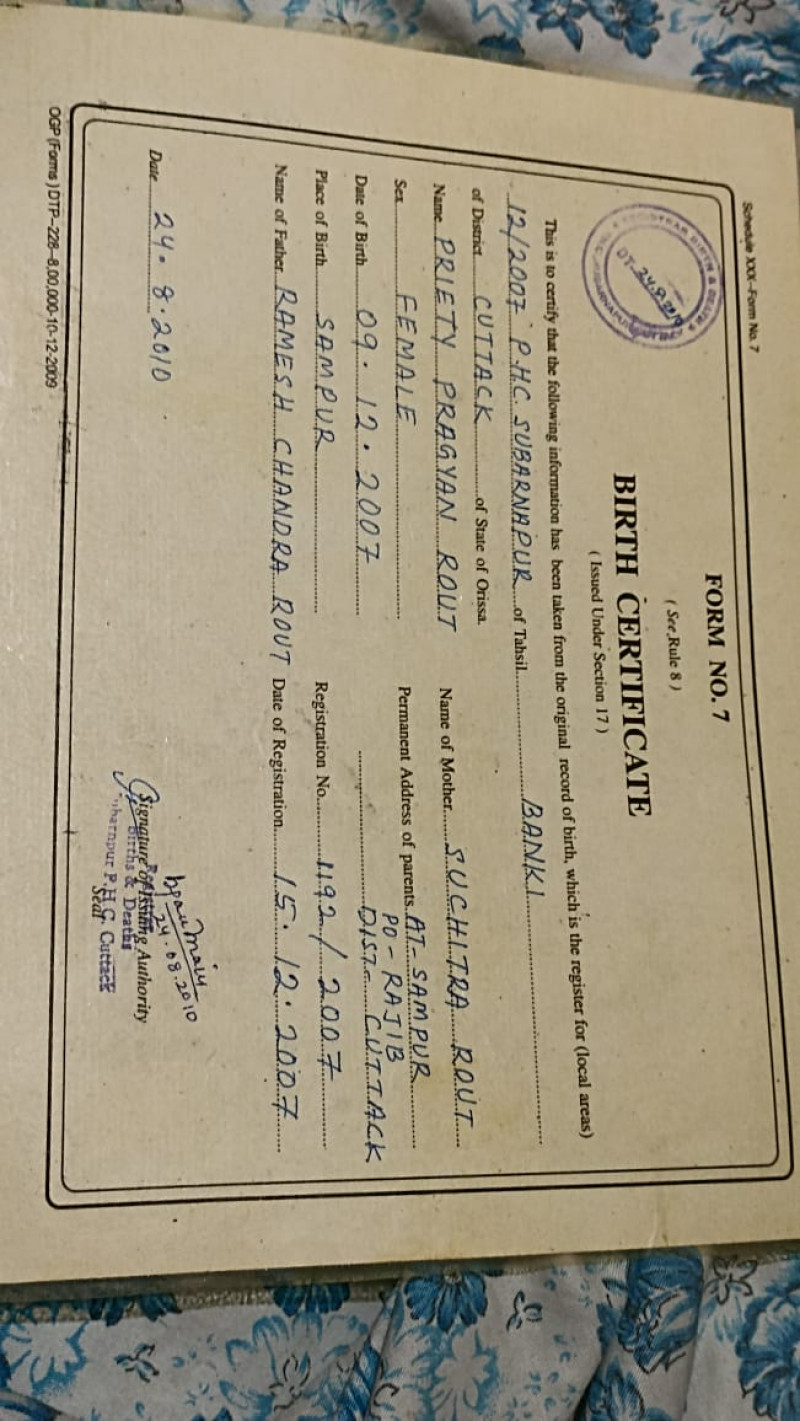 Schedule XXX-Form No. 7
FORM NO. 7
( See Rule 8 )
BIRTH CERTIFICATE
( Issued Under Section 17 )
DT. 24.8.2010
This is to certify that the following information has been taken from the original record of birth, which is the register for (local areas)
12/2007 P.H.C. SUBARNAPUR of Tahsil BANKI
of District CUTTACK of State of Orissa.
Name PRIETY PRAGYAN ROUT Name of Mother SUCHITRA ROUT
Sex FEMALE Permanent Address of parents AT-SAMPUR
PO-RAJIB
Date of Birth 09.12.2007 DIST- CUTTACK
Place of Birth SAMPUR Registration No. 1192/2007
Name of Father RAMESH CHANDRA ROUT Date of Registration 15.12.2007
24.08.2010
Date 24.8.2010 Signature of Issuing Authority
Registrar
Births & Deaths
Subarnpur P.H.C. Cuttack
Seal
OGP (Forms) DTP-226-8,00,000-10-12-2009